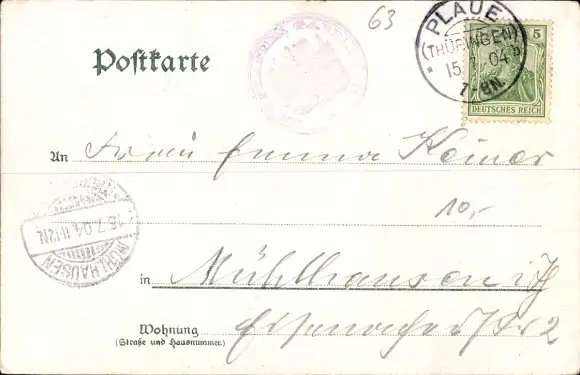 63
Postkarte
PLAUE
(THÜRINGEN)
15. 7. 04
7-8N.
5
DEUTSCHES REICH
An Frau Emma Keiner
10,-
15.7.04.11-12N.
MÜHLHAUSEN
in Mühlhausen i/Th
Wohnung Eisenacher Str 2
(Straße und Hausnummer.)